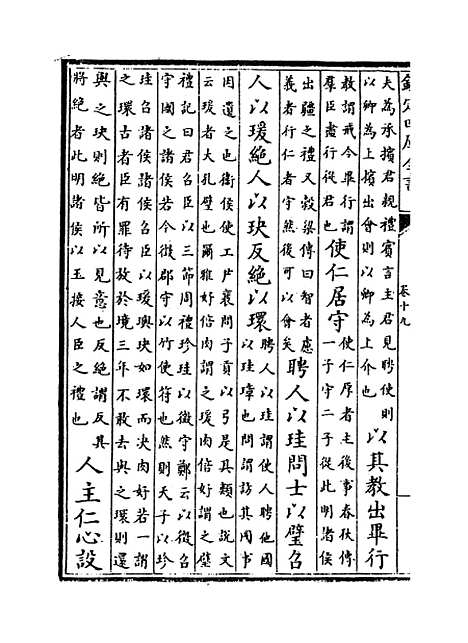 欽定四庫全書
卷十九
夫為承擯君親禮賓言主君見聘使則
以卿為上擯出會則以卿為上介也
以其教出畢行
教謂戒令畢行謂
羣臣盡行從君也
使仁居守
使仁厚者主後事春秋傳
一子守二子從此明諸侯
出疆之禮又穀梁傳曰智者慮
義者行仁者守然後可以會矣
聘人以珪問士以璧召
人以瑗絶人以玦反絶以環
聘人以珪謂使人聘他國
以珪璋也問謂訪其國事
因遺之也衛侯使工尹襄問子貢以弓是其類也說文
云瑗者大孔璧也爾雅好倍肉謂之瑗肉倍好謂之璧
禮記曰君召臣以三節周禮珍珪以徵守鄭云以徵召
守國之諸侯若今徵郡守以竹使符也然則天子以珍
珪召諸侯諸侯召臣以瑗與玦如環而决肉好若一謂
之環古者臣有罪待放於境三年不敢去與之環則還
與之玦則絶皆所以見意也反絶謂反其
將絶者此明諸侯以玉接人臣之禮也
人主仁心設